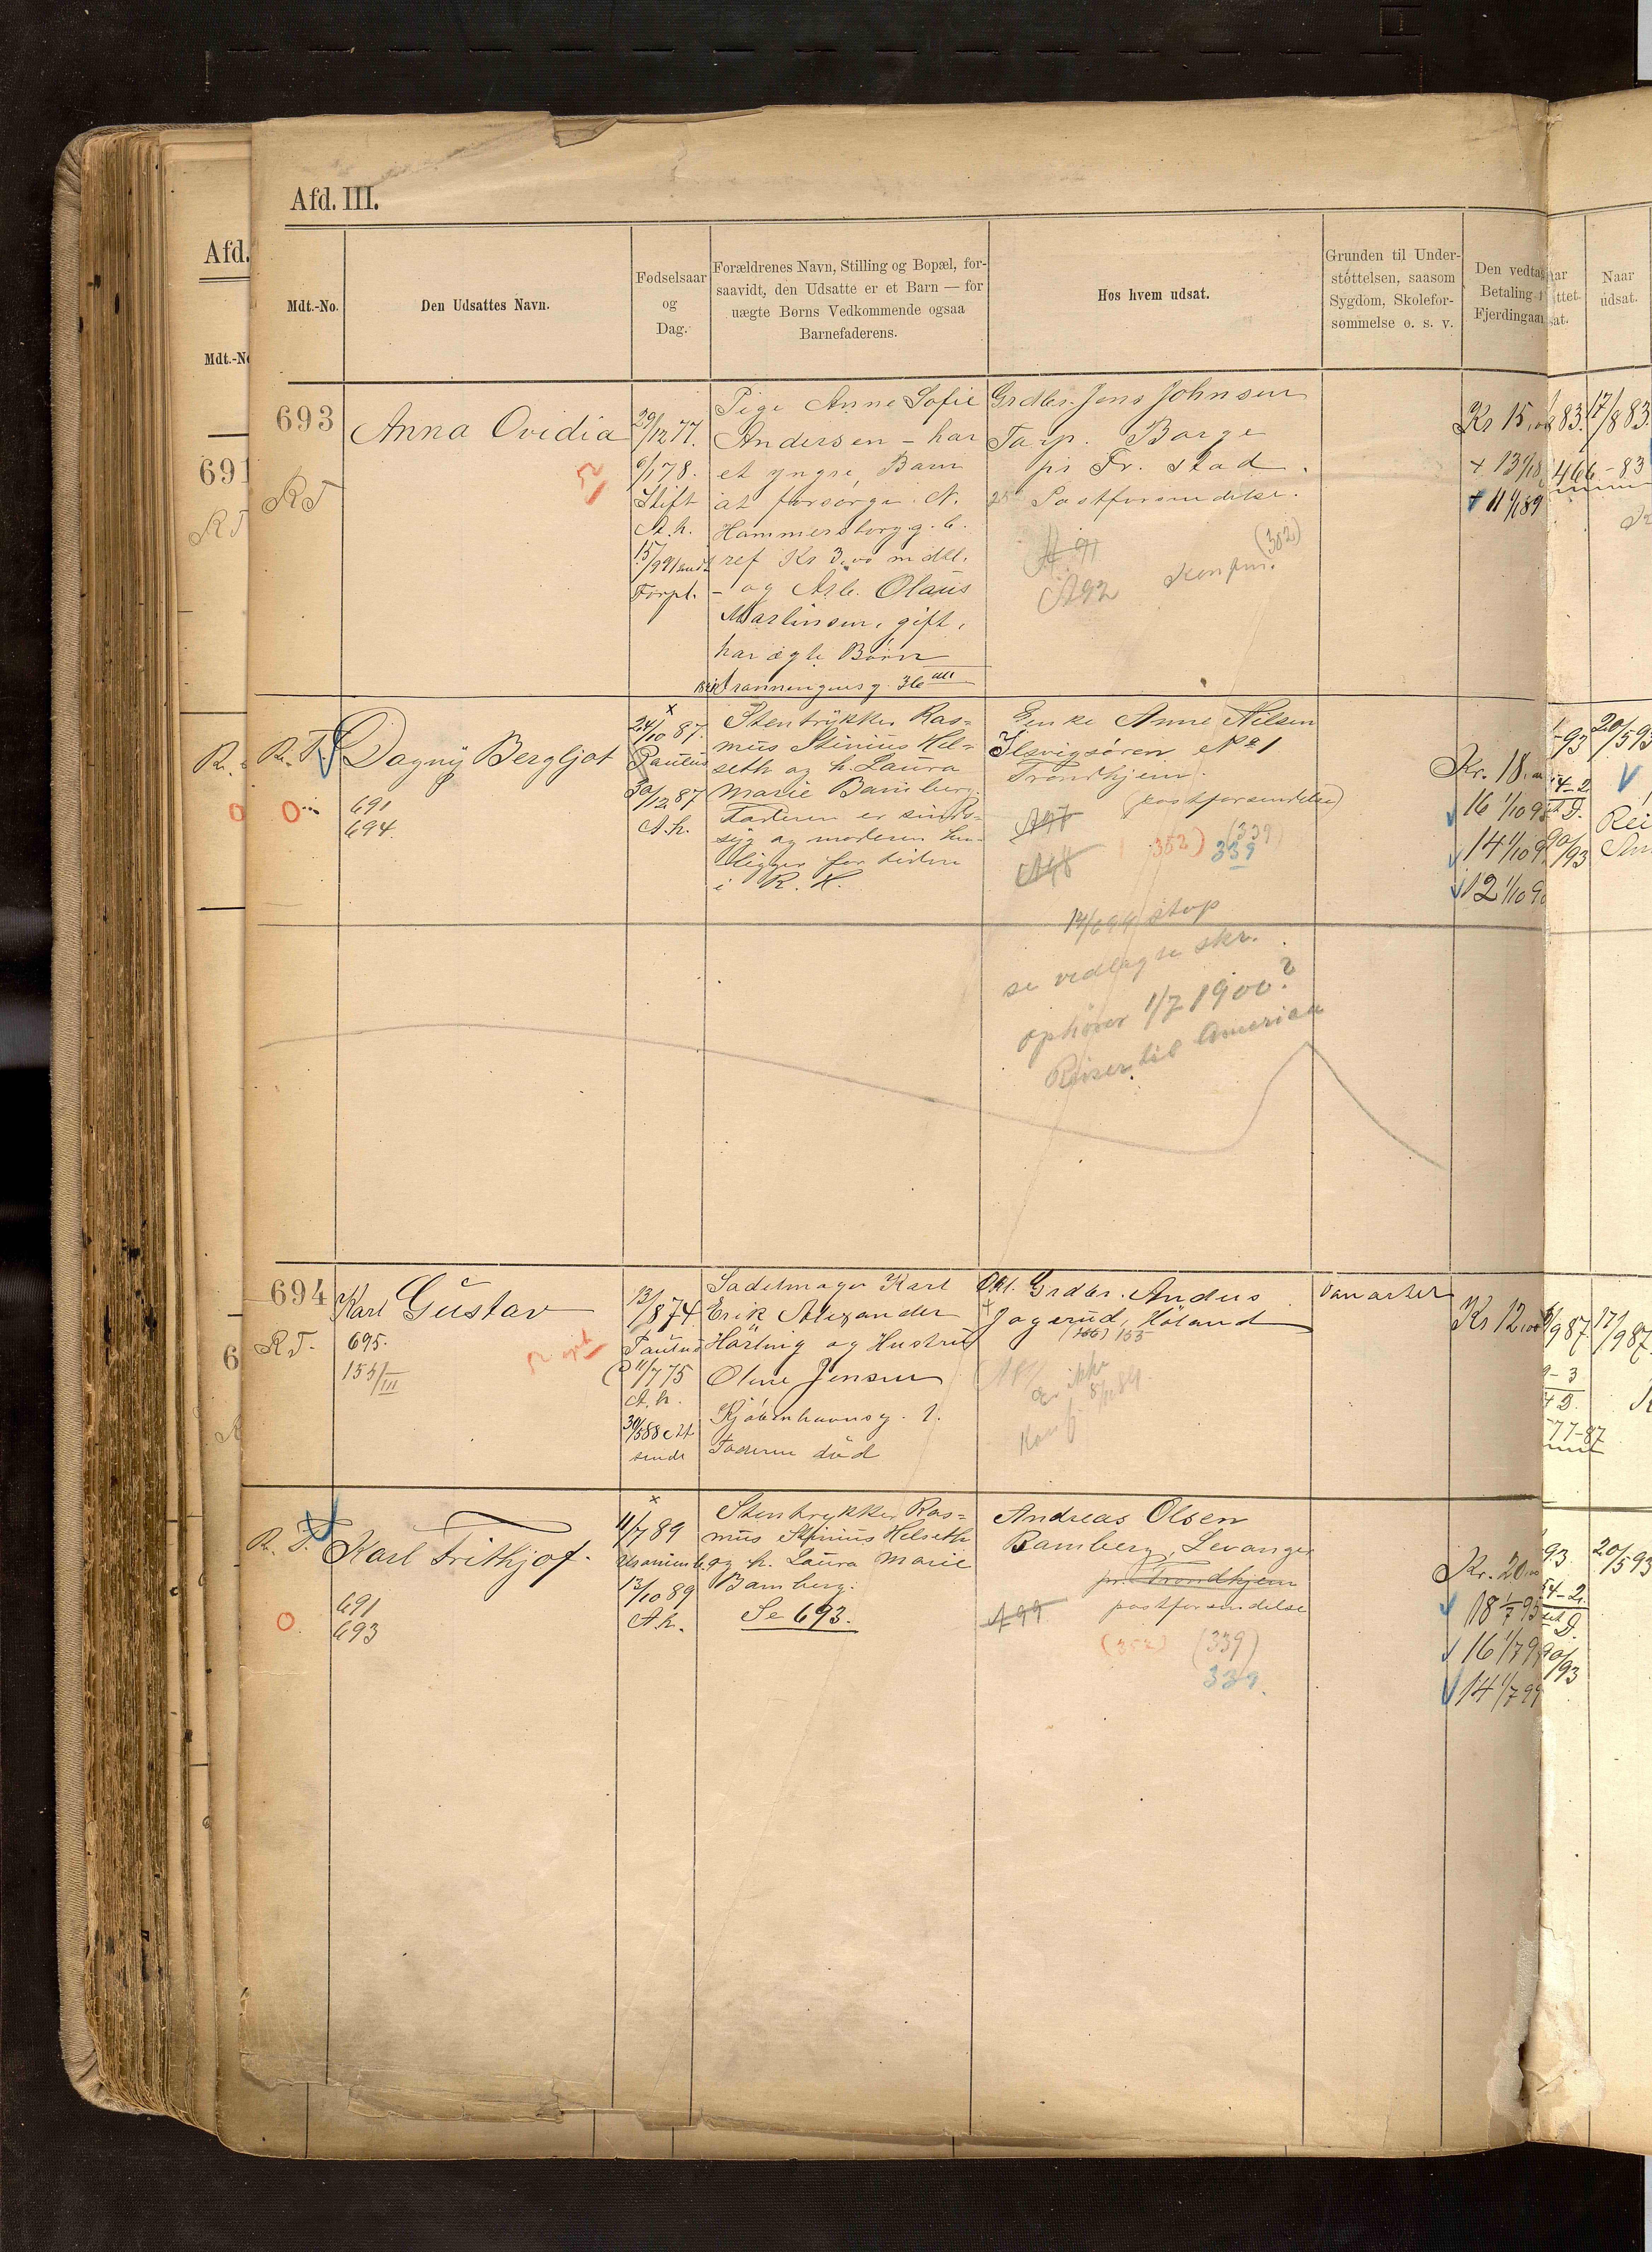 Afd. III.
Afd.
Mdt.-No.
Den Udsattes Navn.
Fødselsaar
og
Dag.
Forældrenes Navn, Stilling og Bopæl, for-
saavidt, den Udsatte er et Barn — for
uægte Børns Vedkommende ogsaa
Barnefaderens.
Hos hvem udsat.
Grunden til Under-
støttelsen, saasom
Sygdom, Skolefor-
sømmelse o. s. v.
Den vedta
Betaling
Fjerdingaar
Naar
udsat.
693
R T
Anna Ovidia
29/12 77.
6/1 78.
Stift
A. h.
Forpl.
Pige Anne Sofie
Andersen - har
et yngre Barn
at forsørge. N.
Hammersborg g. 6.
ref Kr 3,00 mdl.
- og Arb. Olaus
Martinsen, gift,
har ægte Børn
Grdbr. Jens Johnsen
Torp. Borge
pr Fr. stad.
25 Postforsendelse.
A 91
(302)
A 92 Konfirm.
Kr 15,00
+ 13 1/1 8
+ 11 1/1 89
83. 17/8 83.
466-83
R. T.
Dagny Bergljot
691
694.
24/10 87.
Paulus
30/12 87
A. h.
Stentrykker Ras=
mus Stinius Hel=
seth og h. Laura
Marie Bamberg.
Faderen er sinds=
syg og moderen hen=
ligger for tiden
i R. H.
Enke Anne Nilsen
Ilsvigsøren No 1
Trondhjem.
(postforsendelse)
A 97
A 98
(352) (339)
339
14/6 99 stop
se vedlagte skr.
ophører 1/7 1900?
Reiser til Amerika
Kr. 18,00
16 1/10 9
14 1/10 9
12 1/10 9
93 20/5 93
694
R T.
Karl Gustav
695.
155/III
13/8 74
Paulus
11/7 75
A. h.
30/5 88 At
sende
Sadelmager Karl
Erik Alexander
Härling og Hustru
Oline Jensen
Kjøbenhavnsg. 1.
Faderen død
Grdbr. Anders
Jogerud, Høland
(166) 155
ikke
Konf.
Vanartet
Kr 12,00
9 87. 17/9 87.
77-87
R. T.
Karl Frithjof.
691
693
11/7 89
Uranienb.
13/10 89
A. h.
Stentrykker Ras=
mus Stinius Helseth
og h. Laura Marie
Bamberg.
Se 693.
Andreas Olsen
Bamberg, Levanger
pr. Trondhjem
postforsendelse
A 99
(352) (339)
339.
Kr. 20,00
18 1/7 95
16 1/7 9
14 1/7 99
93 20/5 93